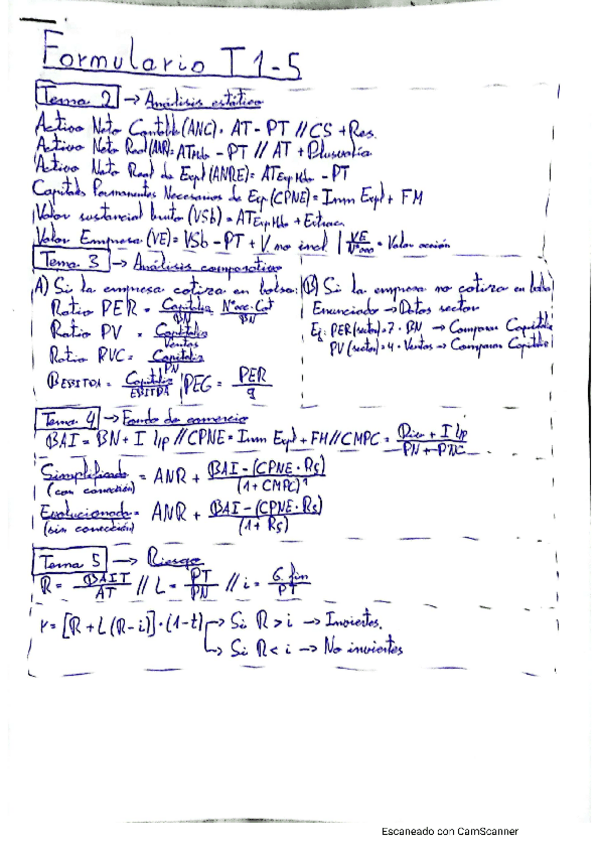 Formulario T1-5
Tema 2 → Análisis estático
Activo Neto Contable (ANC) = AT - PT // CS + Res.
Activo Neto Real (ANR) = AT Mdo - PT // AT + Plusvalía
Activo Neto Real de Expl (ANRE) = AT Exp Mdo - PT
Capitales Permanentes Necesarios de Exp (CPNE) = Inm Expl + FM
Valor sustancial bruto (VSb) = AT Exp Mdo + Extraex
Valor Empresa (VE) = VSb - PT + V no incl | VE / Nº acc = Valor acción
Tema 3 → Análisis comparativo
A) Si la empresa cotiza en bolsa:
Ratio PER = Capitaliz / BN Nº acc · Cot / BN
Ratio PV = Capitaliz / Ventas
Ratio RVC = Capitaliz / PN
BEBITDA = Capitaliz / EBITDA | PEG = PER / g
B) Si la empresa no cotiza en bolsa
Enunciado → Datos sector
Ej: PER (sector) = 7 · BN → Comparar Capitaliz
PV (sector) = 4 · Ventas → Comparar Capitaliz
Tema 4 → Fondo de comercio
BAI = BN + I l/p // CPNE = Inm Expl + FM // CMPC = Div + I l/p / PN + PNC
Simplificado (con corrección) = ANR + BAI - (CPNE · Rs) / (1 + CMPC)^1
Evolucionado (sin corrección) = ANR + BAI - (CPNE · Rs) / (1 + Rs)
Tema 5 → Riesgo
R = BAIT / AT // L = PT / PN // i = G fin / PT
r = [R + L (R - i)] · (1 - t) → Si R > i → Inviertes.
→ Si R < i → No inviertes
Escaneado con CamScanner